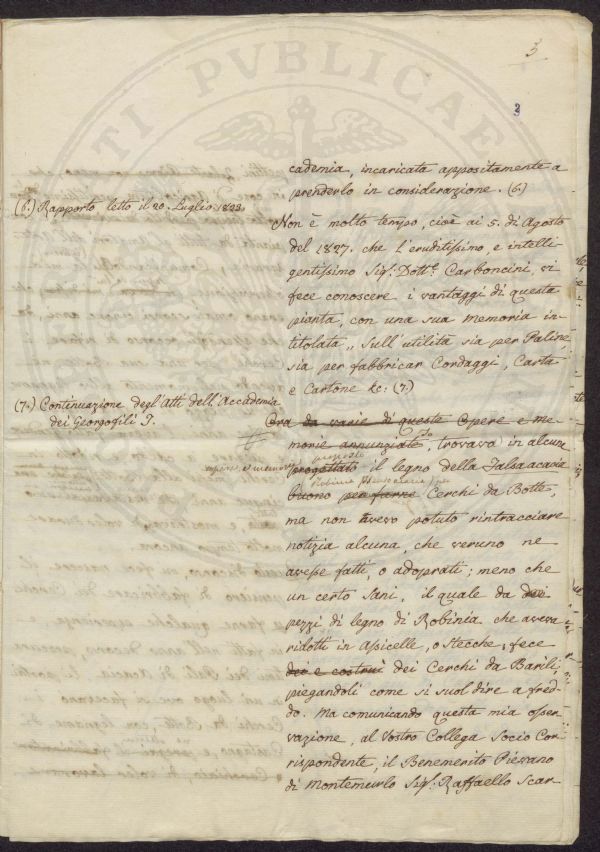 3
3
cademia, incaricata appositamente a
prenderlo in considerazione. (6.)
(6.) Rapporto letto il 20. Luglio 1823.
Non è molto tempo, cioè ai 5. di Agosto
del 1827. che l'eruditissimo, e intelli-
gentissimo Sig.r Dott.r Carboncini, vi
fece conoscere i vantaggi di questa
pianta, con una sua memoria in-
titolata „ Sull'utilità sia per Paline
sia per fabbricar Cordaggi, Carta
e Cartone &c: (7.)
(7.) Continuazione degl'Atti dell'Accademia
dei Georgofili T.
Ora da varie di queste Opere e Me-
morie annunziate, trovava in alcune
opere, e memorie
proposto
progettato il legno della Falsa acacia
Robinia Pseudacacia per
buono per farne Cerchi da Botte,
ma non avevo potuto rintracciare
notizia alcuna, che veruno ne
avesse fatti, o adoprati; meno che
un certo Sani, il quale da dei
pezzi di legno di Robinia che aveva
ridotti in Assicelle, o Stecche, fece
dei e costruì dei Cerchi da Barili
piegandoli come si suol dire a fred-
do. Ma comunicando questa mia osser-
vazione, al Vostro Collega Socio Cor-
rispondente, il Benemerito Pievano
di Montemurlo Sig.r Raffaello Scar-
PVBLICAE